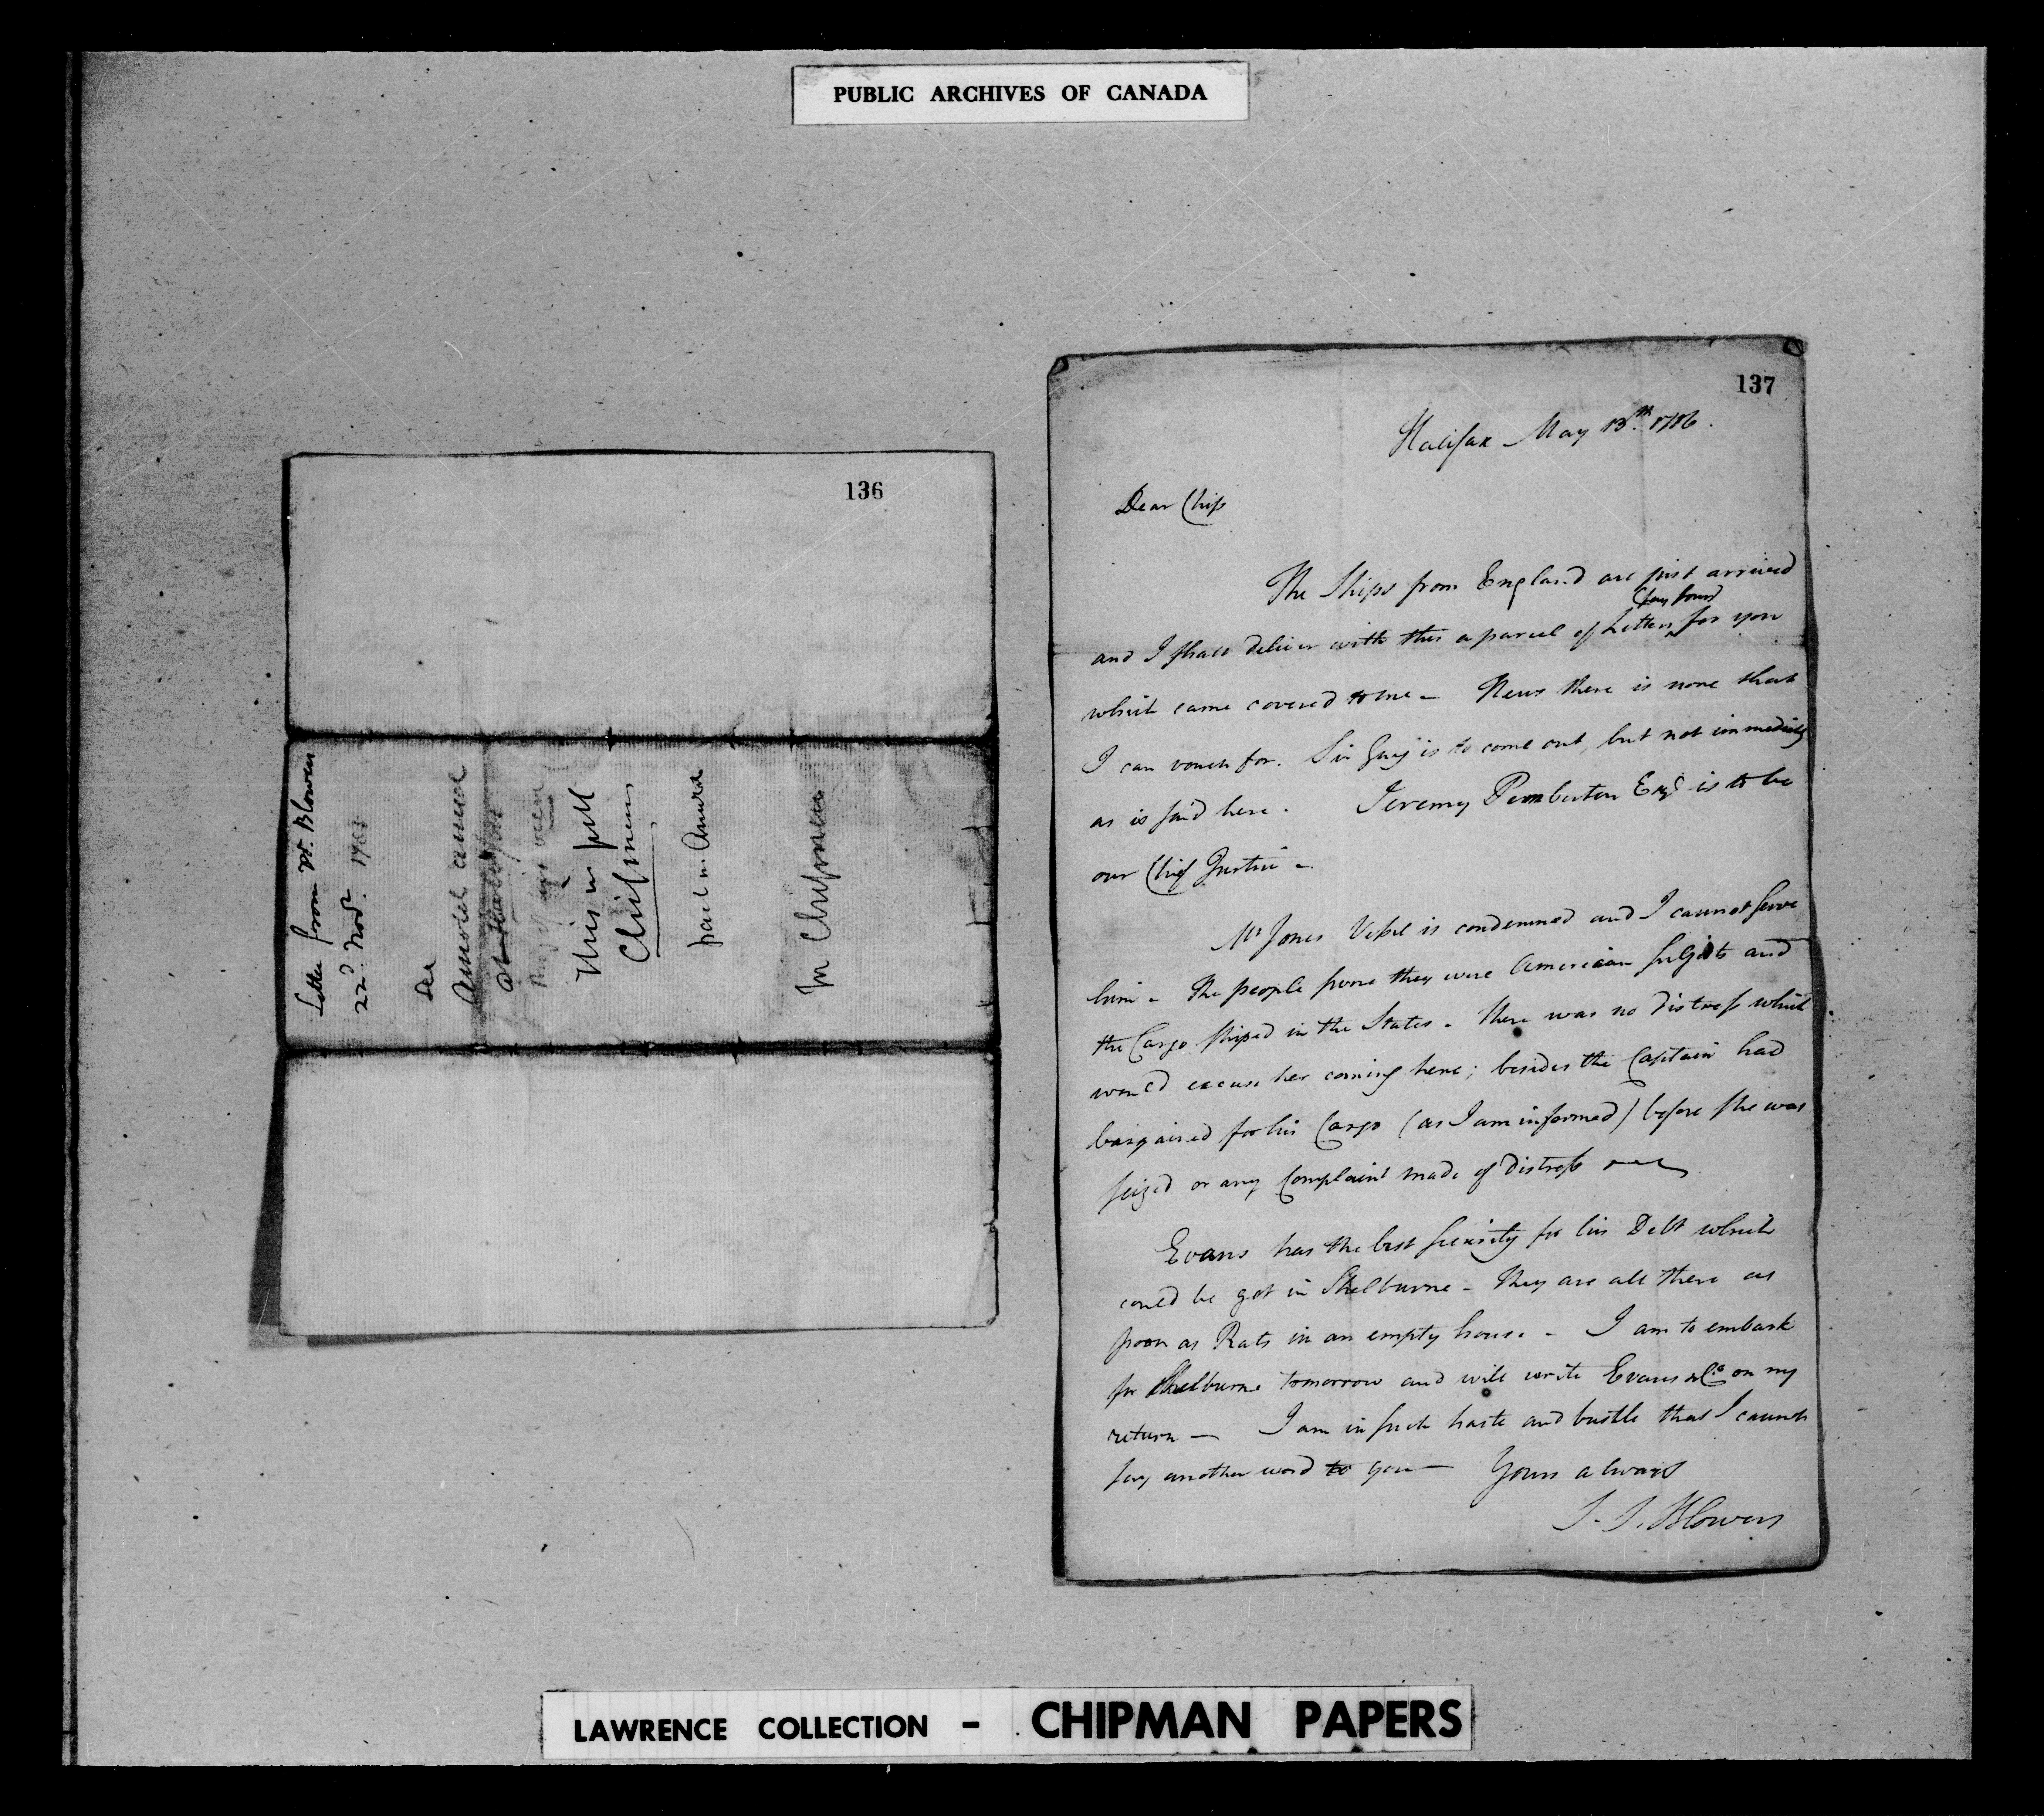 PUBLIC ARCHIVES OF CANADA
136
Letter from Mr. Blowers
22d. Novr.
This
in Chipman
137
Halifax May 13th. 1786.
Dear Chip
The Ships from England are just arrived
and I shall deliver with this a parcel of Letters for you
which came covered to me - News there is none that
I can vouch for. Sir Guy is to come out, but not immediately
as is said here. Jeremy Pemberton Esqr. is to be
our Chief Justice -
Mr Jones Vessel is condemned and I cannot serve
him - The people swore they were American subjects and
the Cargo shiped in the States - there was no distress which
would excuse her coming here; besides the Captain had
bargained for his Cargo (as I am informed) before she was
seized or any Complaint made of distress
Evans has the best security for his Debt which
could be got in Shelburne - They are all there as
poor as Rats in an empty house - I am to embark
for Shelburne tomorrow and will write Evans & Co. on my
return - I am in such haste and bustle that I cannot
say another word to you - Yours always
S. S. Blowers
LAWRENCE COLLECTION - CHIPMAN PAPERS